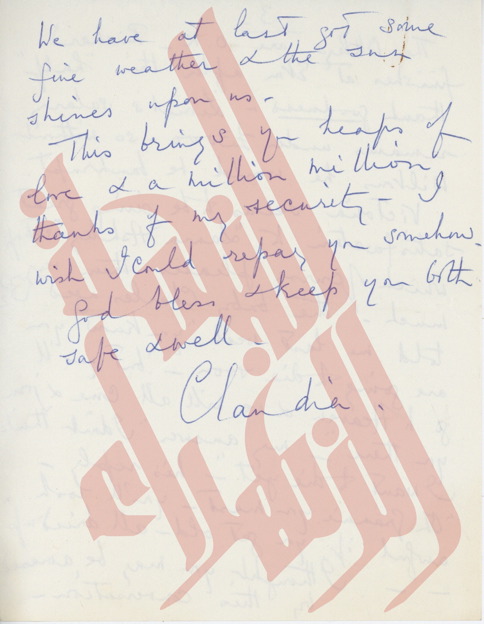 We have at last got some
fine weather & the sun
shines upon us -
This brings you heaps of
love & a million million
thanks for my security - I
wish I could repay you somehow.
God bless & keep you both
safe & well -
Claudia.